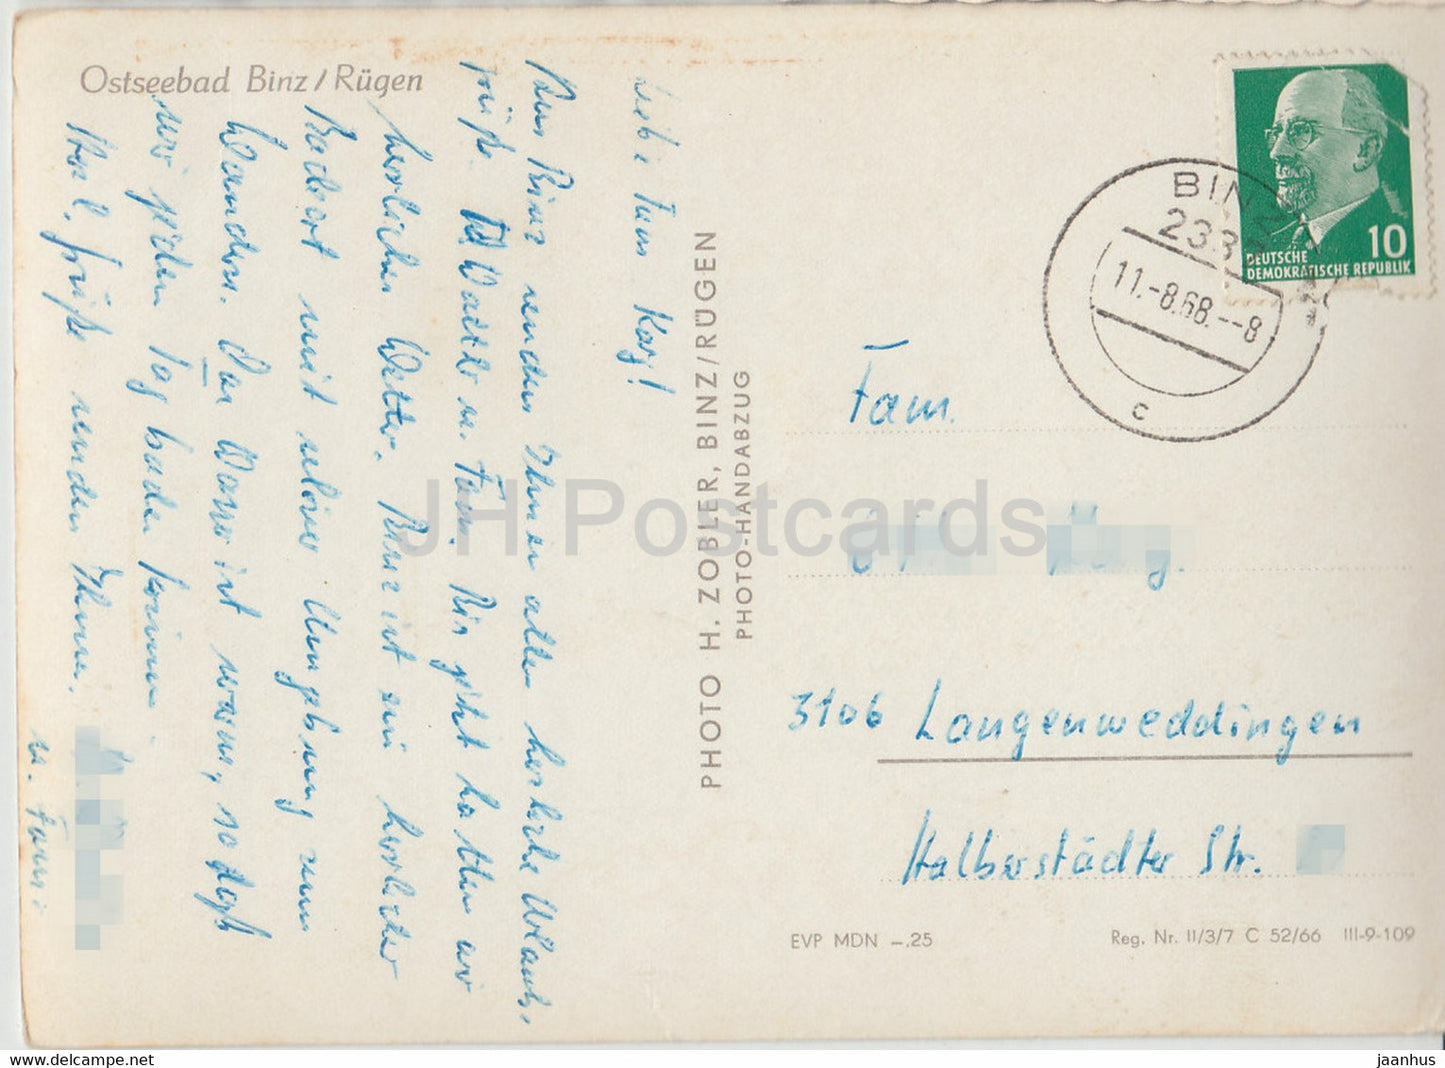 Ostseebad Binz/Rügen
Liebe Fam. Karg!
Aus Binz senden Ihnen allen herzliche Urlaubs-
grüße Walter u. Fam. Bis jetzt hatten wir
herrliches Wetter. Binz ist ein herrlicher
Badeort mit schöner Umgebung zum
Wandern. Das Wasser ist warm, so daß
wir jeden Tag baden können.
Viele Grüße senden Ihnen
u. Fam.
PHOTO H. ZOBLER, BINZ/RÜGEN
PHOTO-HANDABZUG
BINZ
233
11.-8.68.--8
c
10
DEUTSCHE
DEMOKRATISCHE REPUBLIK
Fam.
3106 Langenweddingen
Halberstädter Str.
EVP MDN –.25
Reg. Nr. II/3/7 C 52/66 III-9-109
JH Postcards
www.jhpostcards.com
jaanhus